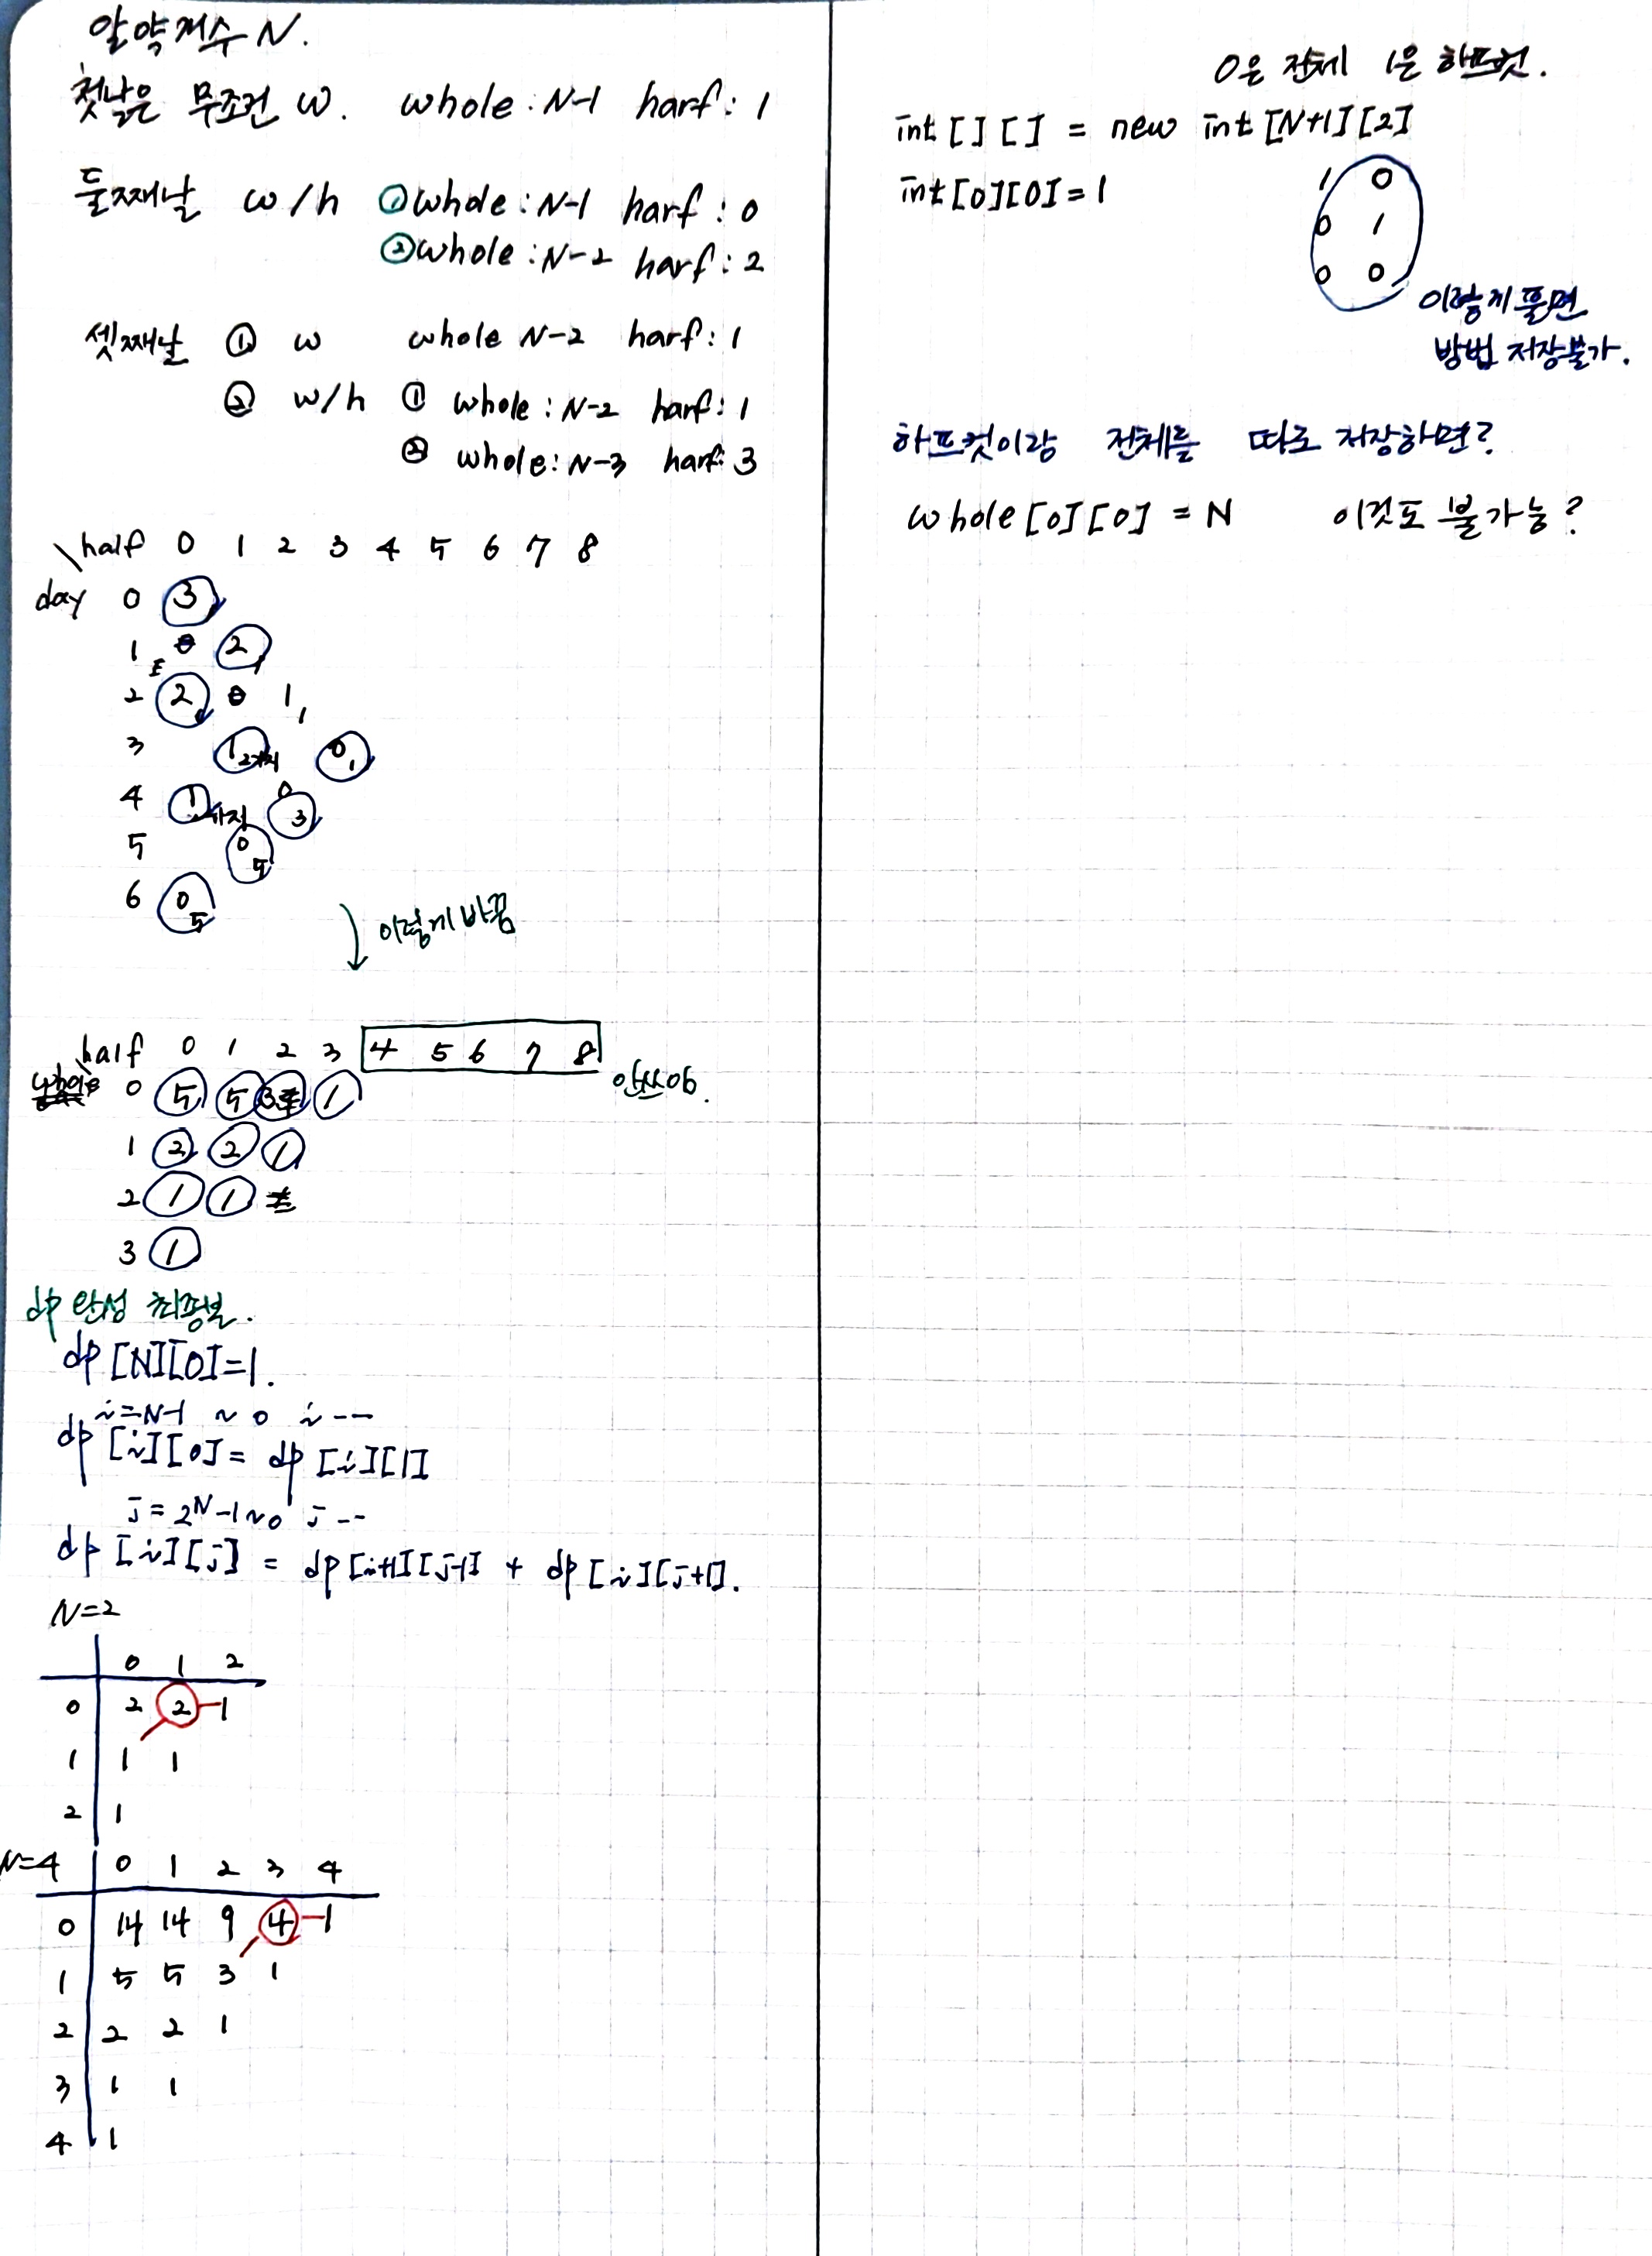 알약개수 N.
첫날은 무조건 W. whole : N-1 harf : 1
둘째날 w/h ① whole : N-1 harf : 0
② whole : N-2 harf : 2
셋째날 ① w whole N-2 harf : 1
② w/h ① whole : N-2 harf : 1
② whole : N-3 harf : 3
\half 0 1 2 3 4 5 6 7 8
day 0 3
1 0 2, 1
2 2, 0 1, 1
3 1 2가지 0, 1
4 1 0 3
5 0 5
6 0 5
이렇게 바꿈
half 0 1 2 3 4 5 6 7 8
안쓰여.
0 5 5 3 1
1 2 2 1
2 1 1
3 1
dp 완성 최종본.
dp [N][0]=1.
i=N-1 ~ 0 i--
dp [i][0] = dp [i][1]
j = 2^N-1 ~ 0 j--
dp [i][j] = dp [i+1][j-1] + dp [i][j+1].
N=2
0 1 2
0 2 2 1
1 1 1
2 1
N=4 0 1 2 3 4
0 14 14 9 4 1
1 5 5 3 1
2 2 2 1
3 1 1
4 1
0은 전체 1은 하프컷.
int [ ] [ ] = new int [N+1] [2]
int [0][0] = 1
1 0
0 1
0 0
이렇게 풀면
방법 저장불가.
하프컷이랑 전체를 따로 저장하면?
whole [0] [0] = N 이것도 불가능?